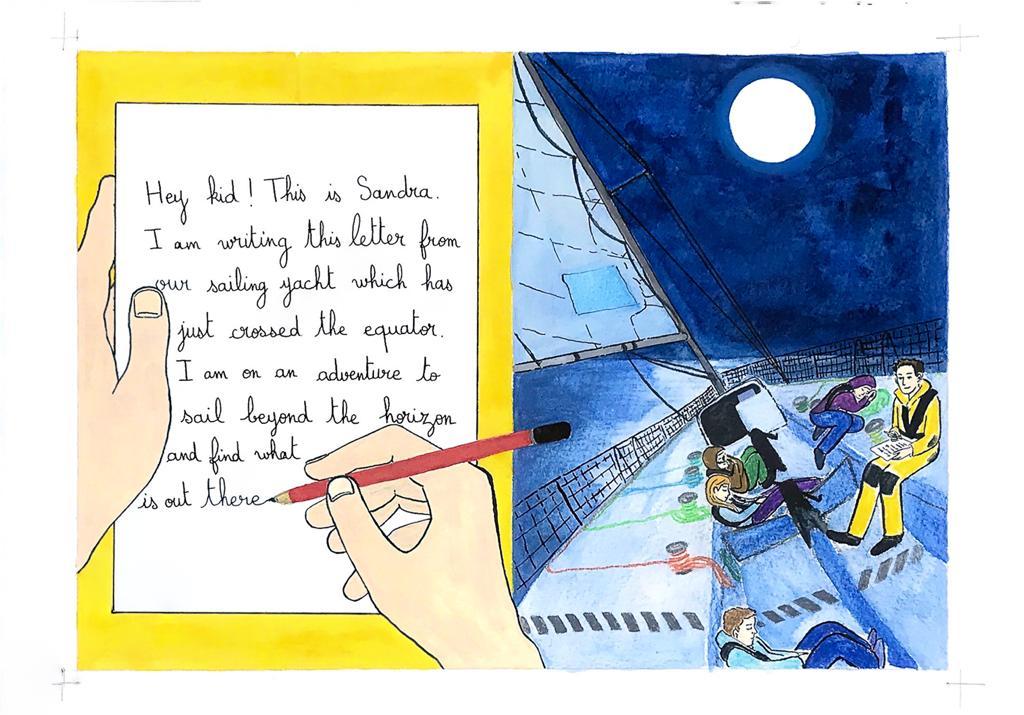 Hey kid! This is Sandra.
I am writing this letter from
our sailing yacht which has
just crossed the equator.
I am on an adventure to
sail beyond the horizon
and find what
is out there